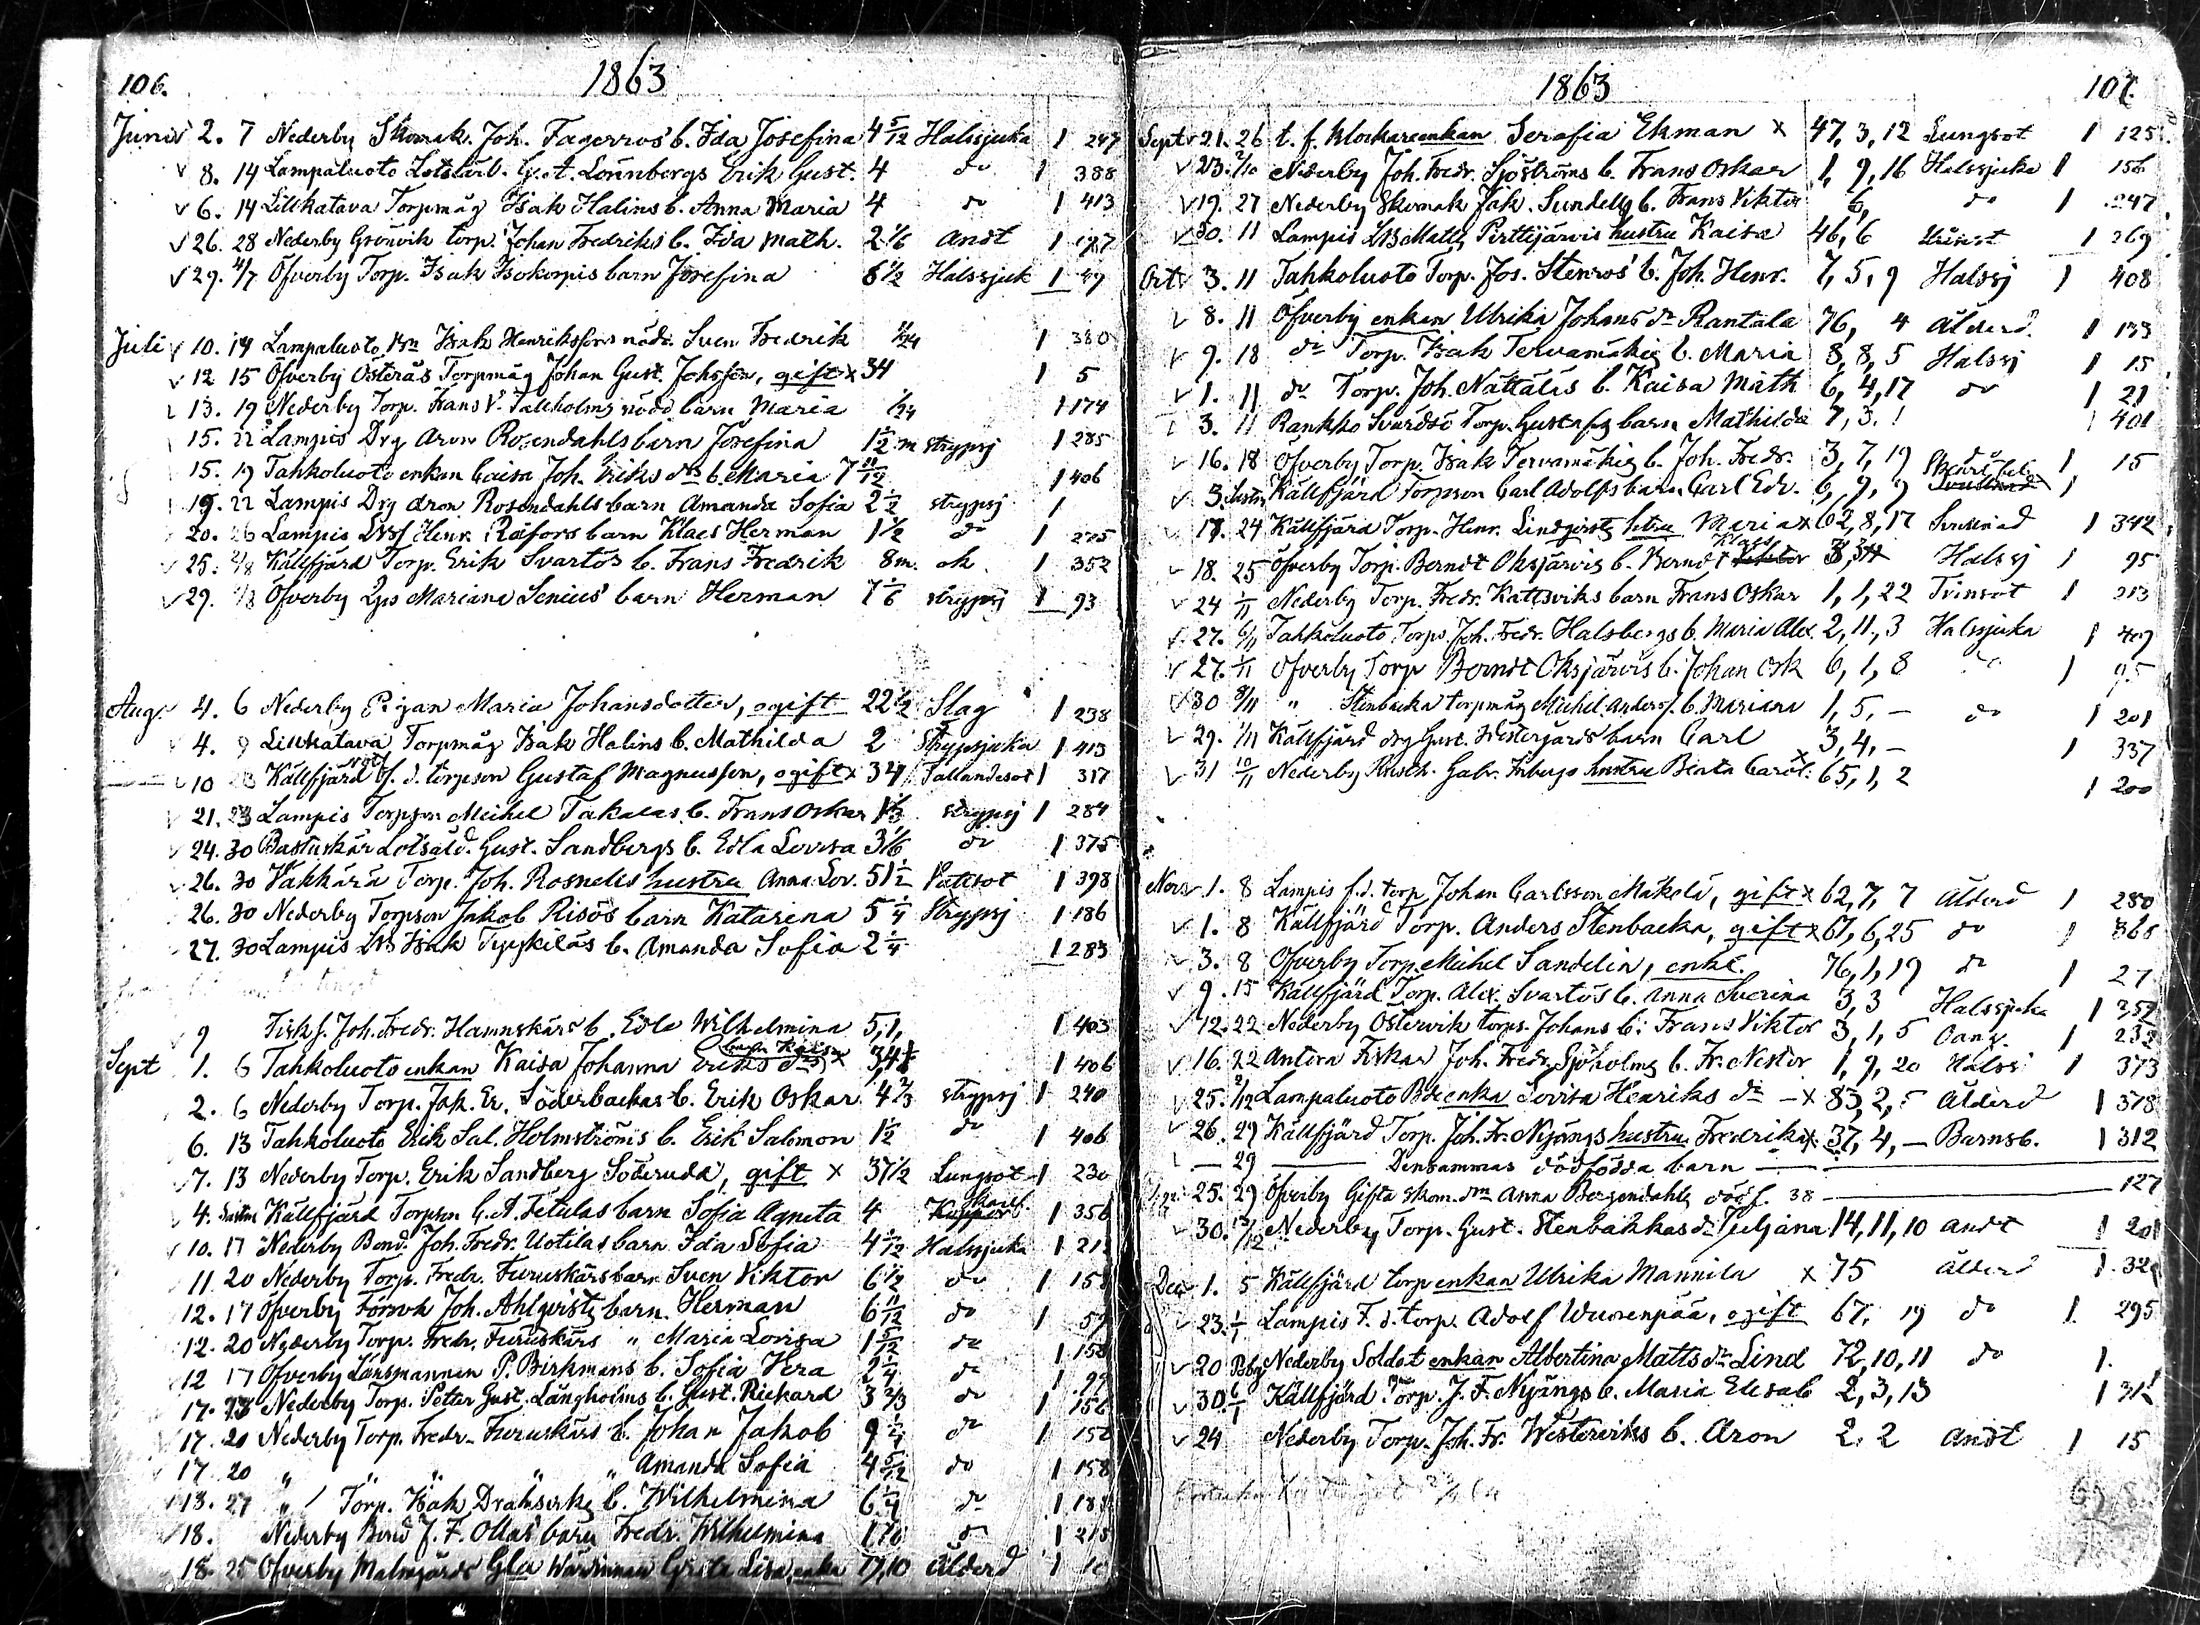 106.
1863
Junii 2. 7 Nederby Skomak. Joh. Fagerros' b. Ida Josefina 4 5/12 Halssjuka 1 247
v 8. 14 Lampaluoto Lots G. A. Lönnbergs Erik Gust. 4 do 1 388
v 6. 14 Lillkatava Torpmåg Isak Halins b. Anna Maria 4 do 1 413
v 26. 28 Nederby Grönvik torp. Johan Fredriks b. Ida Math. 2 1/6 Andt 1
v 29. 4/7 Öfverby Torp. Isak Isokorpis barn Josefina 8 1/2 Halssjuk 1 49
Juli v 10. 14 Lampaluoto Isak Henrikssons nöd. Sven Fredrik 1/24 1 380
v 12 15 Öfverby Österås Torpmåg Johan Gust. Johsson, gift x 34 1 5
13. 19 Nederby Torp. Frans V. Tallholms nödd barn Maria 1/24 1 174
15. 22 Lampis Drg Aron Rosendahls barn Josefina 1 1/2 m strypsj 1 285
15. 19 Tahkoluoto enkan Caisa Joh. Eriks dr b. Maria 7 10/12 1 406
19. 22 Lampis Drg Aron Rosendahls barn Amanda Sofia 2 1/2 strypsj 1
20. 26 Lampis Henr. Räfors barn Klaes Herman 1 1/2 do 1
v 25. 2/8 Källfjärd Torp. Erik Svartös b. Frans Fredrik 8 m. ok 1 352
v 29. 2/8 Öfverby Lps Mariana Senius' barn Herman 1 1/6 strypsj 1 93
Aug. 4. 6 Nederby Pigan Maria Johansdotter, ogift 22 1/2 Slag 1 238
v 4. 9 Lillkatava Torpmåg Isak Halins b. Mathilda 2 Strypsjuka 1 413
v 10 23 Källfjärd f. d. torpson Gustaf Magnusson, ogift x 34 Fallandesot 1 317
21. 23 Lampis Torpson Michel Takalas b. Frans Oskar 1 1/3 strypsj 1 284
v 24. 30 Bastuskär Lotsåld. Gust. Sandbergs b. Edla Lovisa 3 1/6 do 1 375
v 26. 30 Väkkärä Torp. Joh. Rosnells hustru Anna Lov. 51 1/2 Vattsot 1 398
26. 30 Nederby Torpson Jakob Risös barn Katarina 5 1/4 Strypsj 1 186
v 27. 30 Lampis Isak Tyyskiläs b. Amanda Sofia 2 1/4 1 283
v 9 Fisk f. Joh. Fredr. Hamnskärs b. Edla Wilhelmina 5,1, 1 403
Sept 1. 6 Tahkoluoto enkan Kaisa Johanna Eriks dr x 34 1 406
2. 6 Nederby Torp. Jak. Er. Söderbackas b. Erik Oskar 4 2/3 strypsj 1 240
6. 13 Tahkoluoto Erik Sal. Holmströms b. Erik Salomon 1 1/2 do 1 406
v 7. 13 Nederby Torp. Erik Sandberg Söderudd, gift x 37 1/2 Lungsot 1 230
4. Källfjärd Torpson C. A. Tetulas barn Sofia Agneta 4 1 356
v 10. 17 Nederby Bond. Joh. Fredr. Uotilas barn Ida Sofia 4 Halssjuka 1
11 20 Nederby Torp. Fredr. Furuskärs barn Sven Viktor 6 1/2 do 1 158
12. 17 Öfverby Joh. Ahlqvists barn Herman 6 11/12 do 1
12. 20 Nederby Torp. Fredr. Furuskärs " Maria Lovisa 1 5/12 do 1 158
12 17 Öfverby Länsmannen P. Birkmans b. Sofia Vera 2 1/4 do 1
17. 23 Nederby Torp. Peter Gust. Långholms b. Gust. Rickard 3 2/3 do 1 156
v 17. 20 Nederby Torp. Fredr. Furuskärs b. Johan Jakob 9 1/4 do 1 158
17. 20 " " " " " Amanda Sofia 4 5/12 do 1 158
13. 27 " Torp. Isak b. Wilhelmina 6 1/4 do 1
18. Nederby Bond J. F. Ollas barn Fredr. Wilhelmina do 1 215
18. 25 Öfverby Malmgårds Greta Lisa, enka 79,10 Ålderd 1
1863
107.
Sept v 21. 26 t. f. klockareenkan Serafia Ekman x 47, 3, 12 Lungsot 1 125
v 23. 2/10 Nederby Joh. Fredr. Sjöströms b. Frans Oskar 1, 9, 16 Halssjuka 1 156
v 19. 27 Nederby Skomak Jak. Sundells b. Frans Viktor 6, do 1 247
v 30. 11 Lampis Matts Perttijärvis hustru Kaisa 46, 6 1 269
Oct v 3. 11 Tahkoluoto Torp. Jos. Stenros' b. Joh. Henr. 7, 5, 9 Halssj 1 408
v 8. 11 Öfverby enkan Ulrika Johans dr Rantala 76, 4 Ålderd. 1 133
v 9. 18 do Torp. Isak Tervamäkis b. Maria 8, 8, 5 Halssj 1 15
v 1. 11 do Torp. Joh. Nättäläs b. Kaisa Math 6, 4, 17 do 1 21
3. 11 Rankko Svärdsö Torp. Gustafs barn Mathilda 7, 3. 1 401
v 16. 18 Öfverby Torp. Isak Tervamäkis b. Joh. Fredr. 3, 7, 19 do 1 15
v 3. Källfjärd Torpson Carl Adolfs barn Carl Edv. 6, 9, 9 1
v 17. 24 Källfjärd Torp. Henr. Lindqvists hstru Maria x 62, 8, 17 1 342
v 18. 25 Öfverby Torp. Berndt Oksjärvis b. Berndt Klaes Halssj 1 95
v 24 1/11 Nederby Torp. Fredr. Kattsviks barn Frans Oskar 1, 1, 22 Tvinsot 1 213
v 27. 6/11 Tahkoluoto Torps. Joh. Fredr. Halsbergs b. Maria Alex. 2, 11, 3 Halssjuka 1 409
v 27. 1/11 Öfverby Torp Berndt Oksjärvis b. Johan Osk 6, 1, 8 do 1 95
v 30 8/11 " Stenbacka torpmåg Michel Anderss. b. Mariana 1, 5, – do 1 201
v 29. 1/11 Källfjärd drg Gust. Westergårds barn Carl 3, 4, – 1 337
v 31 10/11 Nederby Gabr. Inbergs hustru Beata Carol. x 65, 1, 2 1 200
Novr 1. 8 Lampis f. d. torp Johan Carlsson Mäkelä, gift x 62, 7, 7 Ålderd 1 280
v 1. 8 Källfjärd Torp. Anders Stenbacka, gift x 67, 6, 25 do 1 368
v 3. 8 Öfverby Torp. Michel Sandelin, enkl. 76, 1, 19 do 1 27
v 9. 15 Källfjärd Torp. Alex. Svartös b. Anna Sverina 3, 3 Halssjuka 1 352
v 12. 22 Nederby Östervik torps. Johans b. Frans Viktor 3, 1, 5 1 232
v 16. 22 Antora Fiskar Joh. Fredr. Sjöholms b. Fr. Nestor 1, 9, 20 Halssj 1 373
v 25. 2/12 Lampaluoto enka Lovisa Henriks dr – x 83, 2, Ålderd 1 378
v 26. 29 Källfjärd Torp. Joh. Fr. Nyängs hustru Fredrika x 37, 4, – Barnsb. 1 312
— 29 — Densammas dödfödda barn —
25. 29 Öfverby Gifta skom. Anna Bergendahls dödf. 38 — 127
v 30. 13/12 Nederby Torp. Gust. Stenbakkas dr Juljana 14, 11, 10 andt 1 201
Dec 1. 5 Källfjärd torp enkan Ulrika Mannila x 75 Ålderd 1
v 23. 1/1 Lampis F. d. torp. Adolf Wuorenpää, ogift 67, 19 do 1. 295
v 20 Nederby Soldat enkan Albertina Matts dr Lind 72, 10, 11 do 1.
v 30. 6/1 Källfjärd Torp. J. F. Nyängs b. Maria Elisab 2, 3, 13 1 312
v 24 Nederby Torp. Joh. Fr. Westerviks b. Aron 2. 2 Andt 1 15